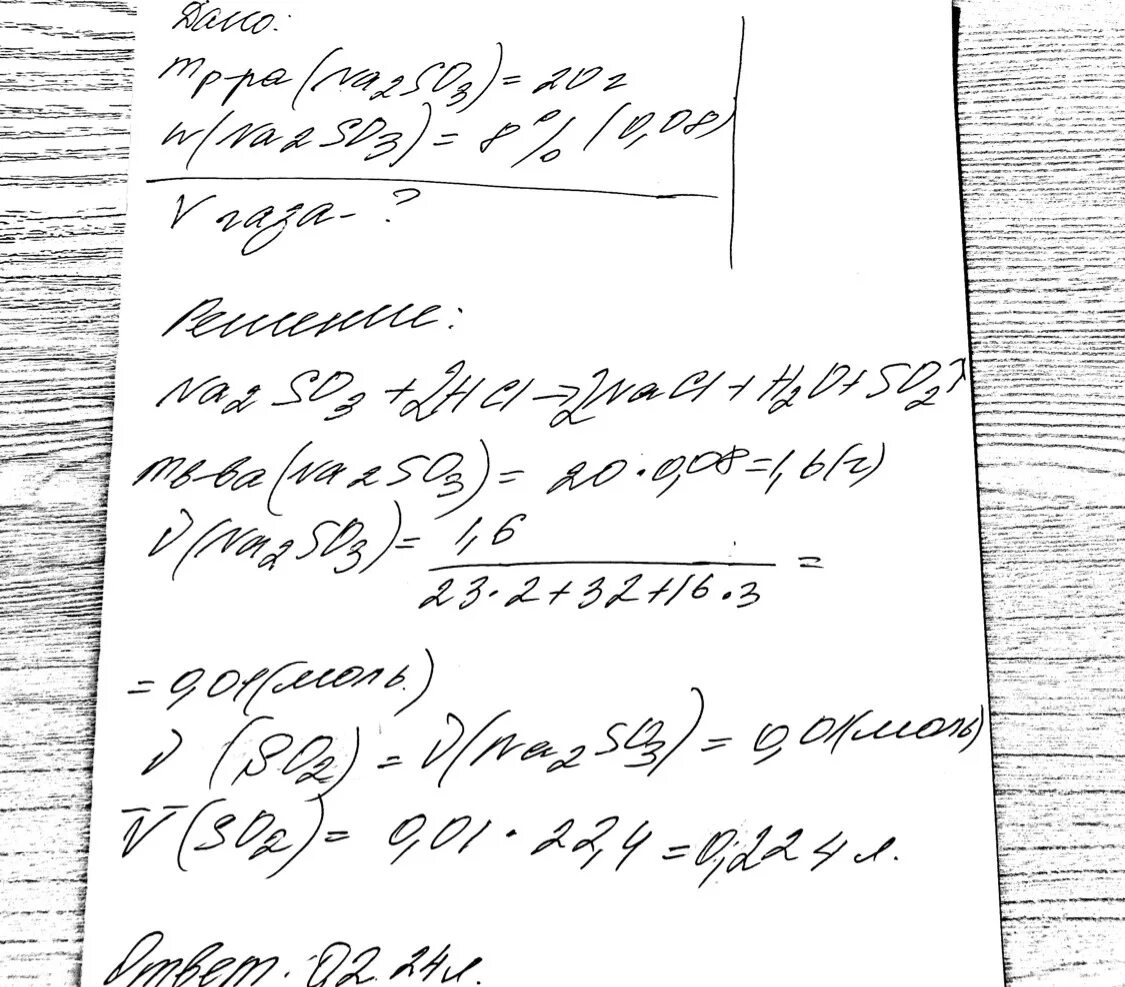 Дано:
mр-ра(Na2SO3) = 20 г
w(Na2SO3) = 8% (0,08)
V газа - ?
Решение:
Na2SO3 + 2HCl → 2NaCl + H2O + SO2↑
mв-ва(Na2SO3) = 20 · 0,08 = 1,6(г)
ν(Na2SO3) = 1,6 / 23·2+32+16·3 =
= 0,01(моль)
ν(SO2) = ν(Na2SO3) = 0,01(моль)
V(SO2) = 0,01 · 22,4 = 0,224 л.
Ответ: 0,224 л.